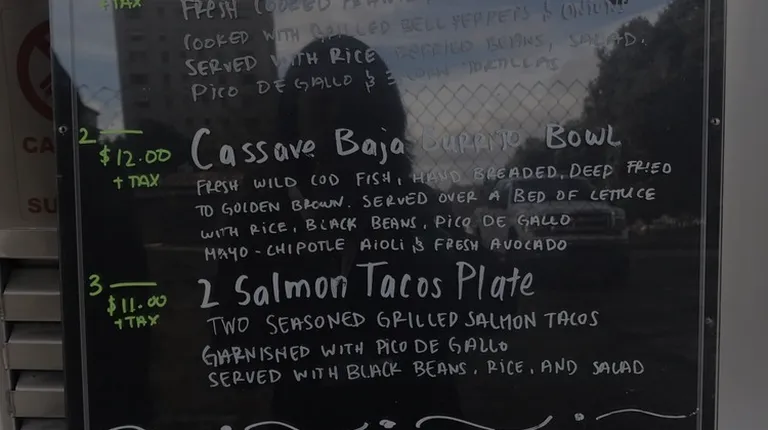 +TAX
FRESH COOKED
COOKED WITH GRILLED BELL PEPPERS & ONIONS
SERVED WITH RICE REFRIED BEANS, SALAD,
PICO DE GALLO & TORTILLAS
2
$12.00
+ TAX
Cassave Baja BURRITO BOWL
FRESH WILD COD FISH, HAND BREADED, DEEP FRIED
TO GOLDEN BROWN. SERVED OVER A BED OF LETTUCE
WITH RICE, BLACK BEANS, PICO DE GALLO
MAYO-CHIPOTLE AIOLI & FRESH AVOCADO
3
$11.00
+TAX
2 Salmon Tacos Plate
TWO SEASONED GRILLED SALMON TACOS
GARNISHED WITH PICO DE GALLO
SERVED WITH BLACK BEANS, RICE, AND SALAD
CA
SU